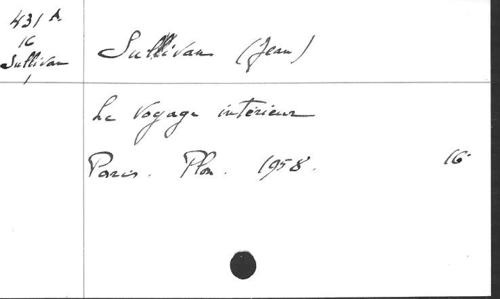 431 A
16
Sullivan
1
Sullivan (Jean)
Le Voyage intérieur
Paris. Plon. 1958. 16°